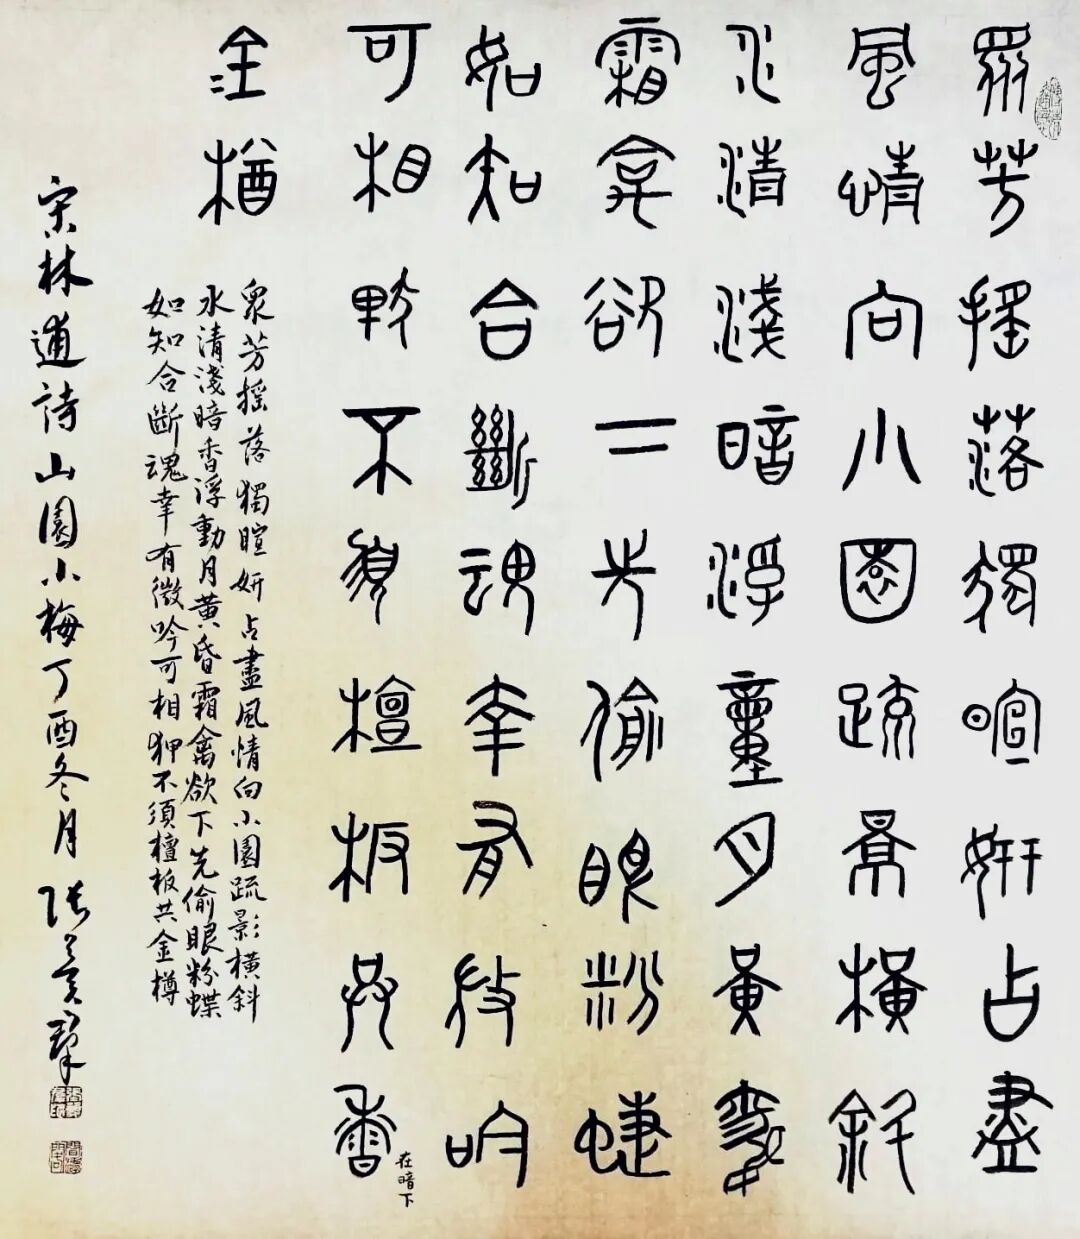 眾芳搖落獨暄妍占盡
風情向小園疏景橫斜
水清淺暗浮動月黃昏
霜禽欲下先偷眼粉蝶
如知合斷魂幸有微吟
可相狎不須檀板共香
在暗下
金樽
眾芳搖落獨暄妍占盡風情向小園疏影橫斜
水清淺暗香浮動月黃昏霜禽欲下先偷眼粉蝶
如知合斷魂幸有微吟可相狎不須檀板共金樽
宋林逋詩山園小梅丁酉冬月張